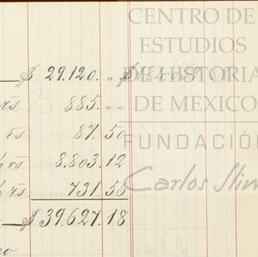 CENTRO DE
ESTUDIOS
DE HISTORIA
DE MEXICO
FUNDACIÓN
Carlos Slim
$ 29.120. „ $
rs 885. „
rs 87.50
rs 8.803.12
rs 731.56
$ 39.627.18